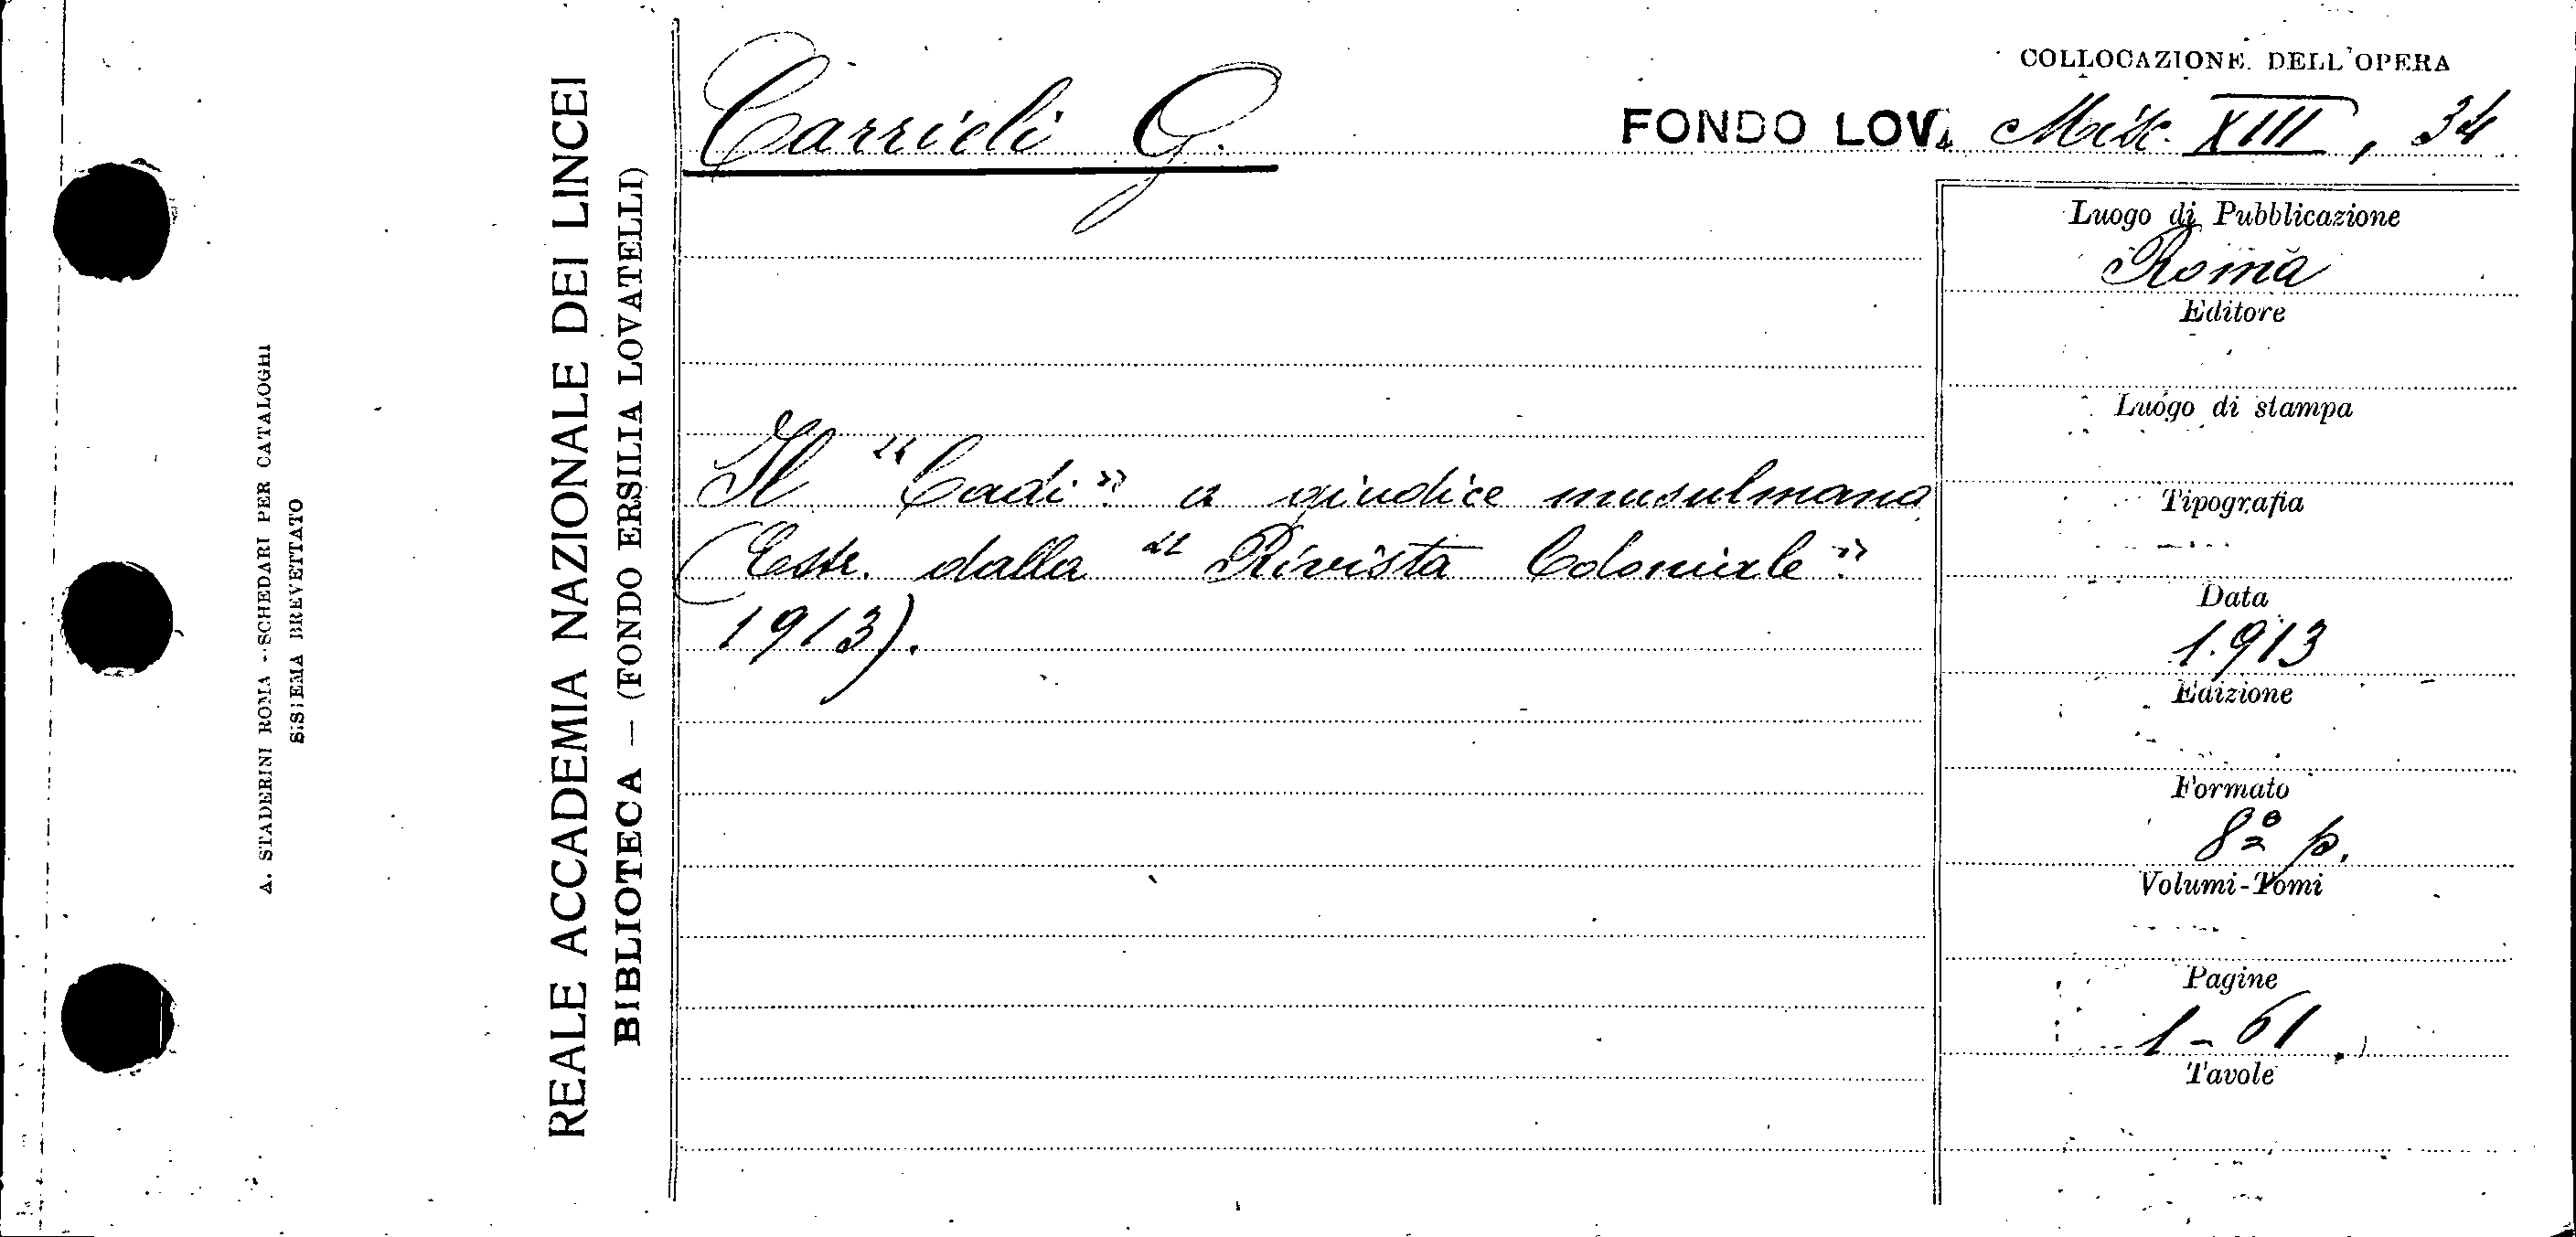 COLLOCAZIONE DELL'OPERA
Carrieli G.
FONDO LOV. Misc. XIII, 34
REALE ACCADEMIA NAZIONALE DEI LINCEI
BIBLIOTECA — (FONDO ERSILIA LOVATELLI)
A. STADERINI ROMA - SCHEDARI PER CATALOGHI
SISTEMA BREVETTATO
Il "Cadi" o giudice musulmano
(Estr. dalla "Rivista Coloniale"
1913).
Luogo di Pubblicazione
Roma
Editore
Luogo di stampa
Tipografia
Data
1913
Edizione
Formato
8° p.
Volumi-Tomi
Pagine
1-61
Tavole